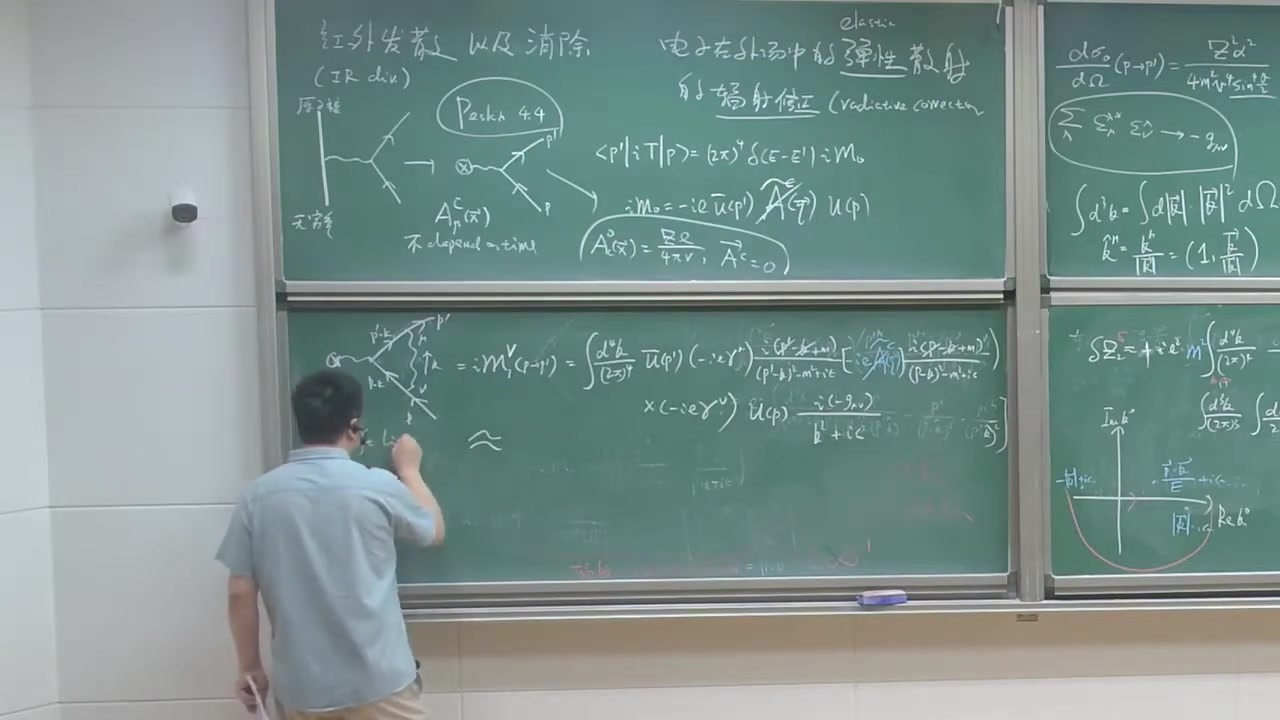 红外发散 以及消除
(IR div)
原子核
无穷重
Peskin 4.4
p'
p
A_μ^C(x⃗)
不 depend on time
elastic
电子在外场中的弹性散射
的辐射修正 (radiative correction
<p'|iT|p> = (2π)^4 δ(E-E') i M_0
i M_0 = -ie ū(p') A̸^C(q⃗) u(p)
A_c^0(x⃗) = Ze/4πr, A⃗^c = 0
dσ_0/dΩ (p→p') = Z²α²/4m²v⁴sin⁴θ/2
Σ_λ ε_μ^{λ*} ε_ν^λ → -g_μν
∫d³k = ∫d|k⃗|·|k⃗|² dΩ
k̂^μ = k^μ/|k⃗| = (1, k⃗/|k⃗|)
p'-k
p'
μ
k
p-k
ν
p
= i M_1^V(p→p') = ∫ d⁴k/(2π)⁴ ū(p') (-ieγ^μ) i(p̸'-k̸+m)/((p'-k)²-m²+iε) [-ie A̸(q)] i(p̸-k̸+m)/((p-k)²-m²+iε)
×(-ieγ^ν) u(p) i(-g_μν)/(k²+iε)
≈
δZ_2 = + ie² m² ∫ d⁴k/(2π)⁴
∫ d³k/(2π)³
Im k⁰
-|k⃗|+iε
p⃗·k⃗/E + iε
|k⃗|-iε
Re k⁰